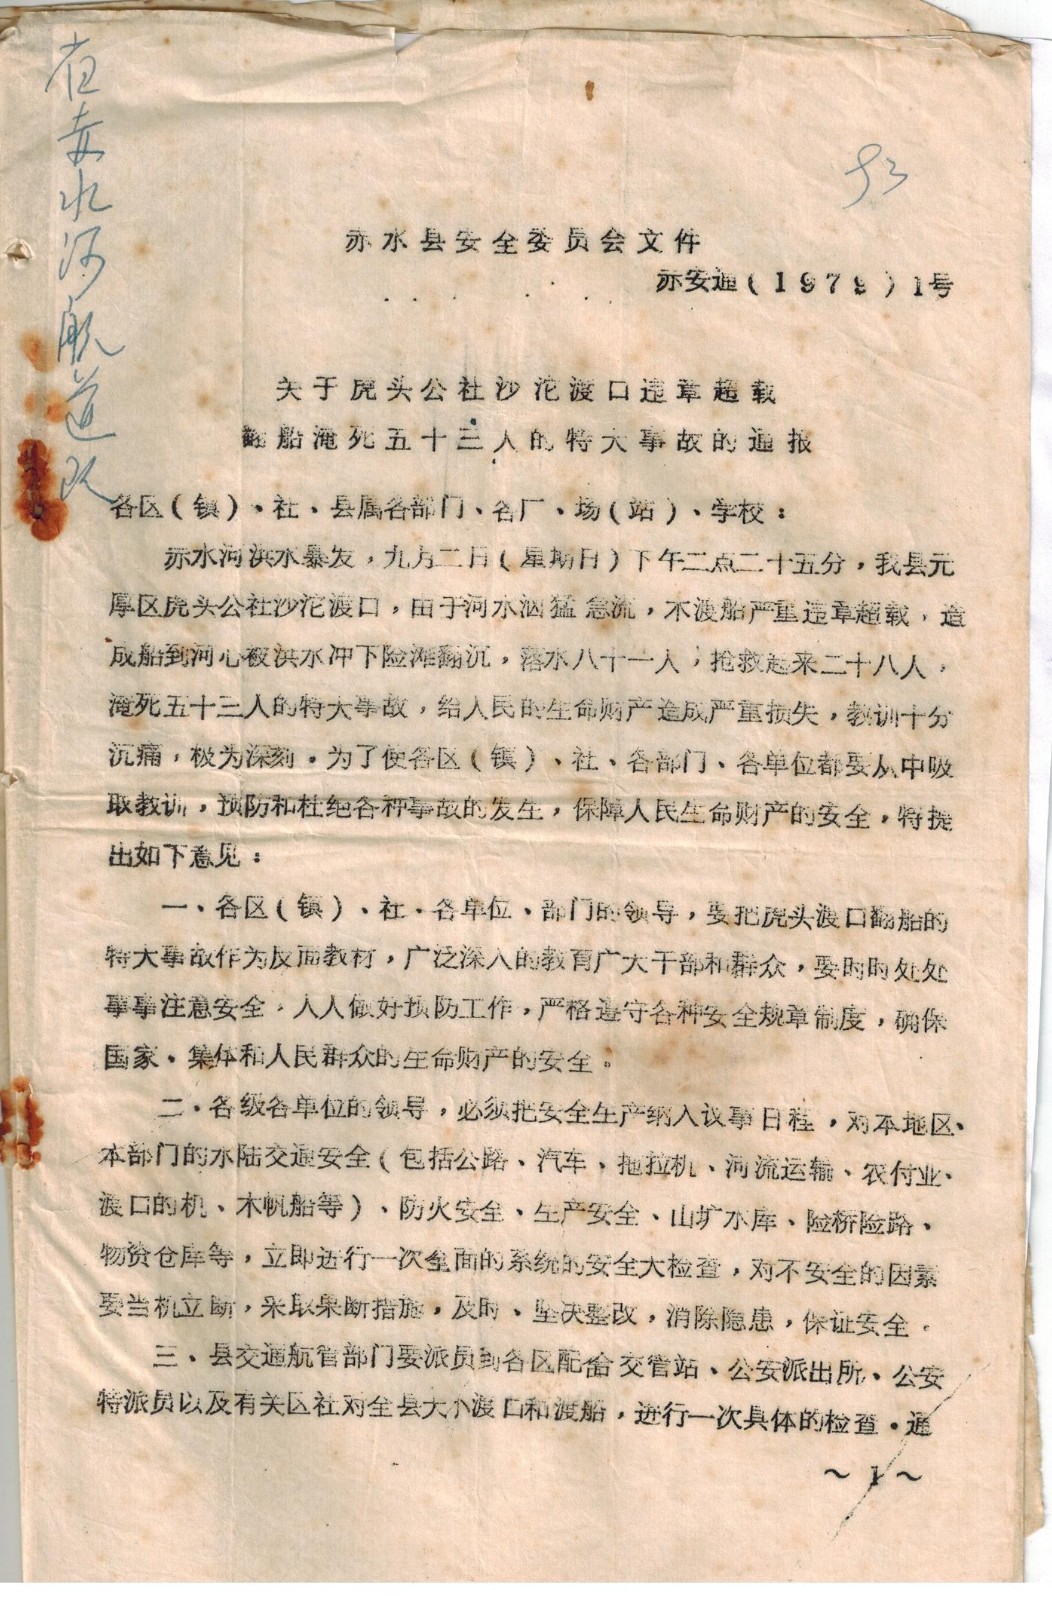 省赤水河航道队
93
赤水县安全委员会文件
赤安通(1979)1号
关于虎头公社沙沱渡口违章超载
翻船淹死五十三人的特大事故的通报
各区(镇)、社、县属各部门、各厂、场(站)、学校:
赤水河洪水暴发,九月二日(星期日)下午二点二十五分,我县元
厚区虎头公社沙沱渡口,由于河水汹猛急流,木渡船严重违章超载,造
成船到河心被洪水冲下险滩翻沉,落水八十一人,抢救起来二十八人,
淹死五十三人的特大事故,给人民的生命财产造成严重损失,教训十分
沉痛,极为深刻。为了使各区(镇)、社、各部门、各单位都要从中吸
取教训,预防和杜绝各种事故的发生,保障人民生命财产的安全,特提
出如下意见:
一、各区(镇)、社、各单位、部门的领导,要把虎头渡口翻船的
特大事故作为反面教材,广泛深入的教育广大干部和群众,要时时处处
事事注意安全,人人做好预防工作,严格遵守各种安全规章制度,确保
国家、集体和人民群众的生命财产的安全。
二、各级各单位的领导,必须把安全生产纳入议事日程,对本地区、
本部门的水陆交通安全(包括公路、汽车、拖拉机、河流运输、农付业、
渡口的机、木帆船等)、防火安全、生产安全、山圹水库、险桥险路、
物资仓库等,立即进行一次全面的系统的安全大检查,对不安全的因素
要当机立断,采取果断措施,及时、坚决整改,消除隐患,保证安全。
三、县交通航管部门要派员到各区配合交管站、公安派出所、公安
特派员以及有关区社对全县大小渡口和渡船,进行一次具体的检查。通
~1~